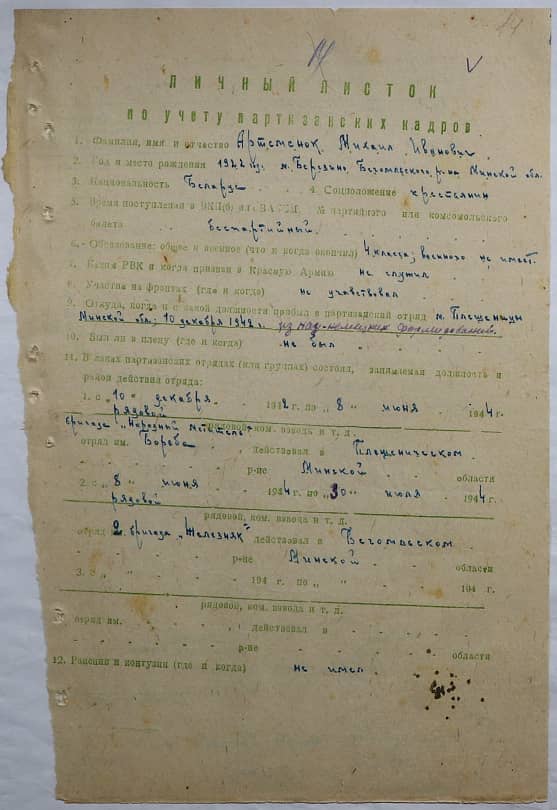 14
ЛИЧНЫЙ ЛИСТОК
по учету партизанских кадров
1. Фамилия, имя и отчество Артеменок Михаил Иванович
2. Год и место рождения 1922 год. м. Березино, Бегомльского р-на Минской обл.
3. Национальность Беларус 4. Соцположение крестьянин
5. Время поступления в ВКП(б) или ВЛКСМ, № партийного или комсомольского
билета беспартийный.
6. Образование: общее и военное (что и когда окончил) 4 класса; военного не имеет.
7. Каким РВК и когда призван в Красную Армию не служил
8. Участие на фронтах (где и когда) не учавствовал
9. Откуда, когда и с какой должности прибыл в партизанский отряд м. Плещеницы
Минской обл; 10 декабря 1942 г. из
10. Был ли в плену (где и когда) не был
11. В каких партизанских отрядах (или группах) состоял, занимаемая должность и
район действия отряда:
1. с „10“ декабря 1942 г. по „8“ июня 1944 г.
рядовой
рядовой, ком. взвода и т. д.
бригада „Народный меститель“
отряд им. Борьба, действовал в Плещеническом
р-не Минской области
2. с „8“ июня 1944 г. по „30“ июля 1944 г.
рядовой
рядовой, ком. взвода и т. д.
отряд 2. бригада „Железняк“ действовал в Бегомльском
р-не Минской области
3. с „ “ 194 г. по „ “ 194 г.
рядовой, ком. взвода и т. д.
отряд им. , действовал в
р-не области
12. Ранения и контузии (где и когда) не имел